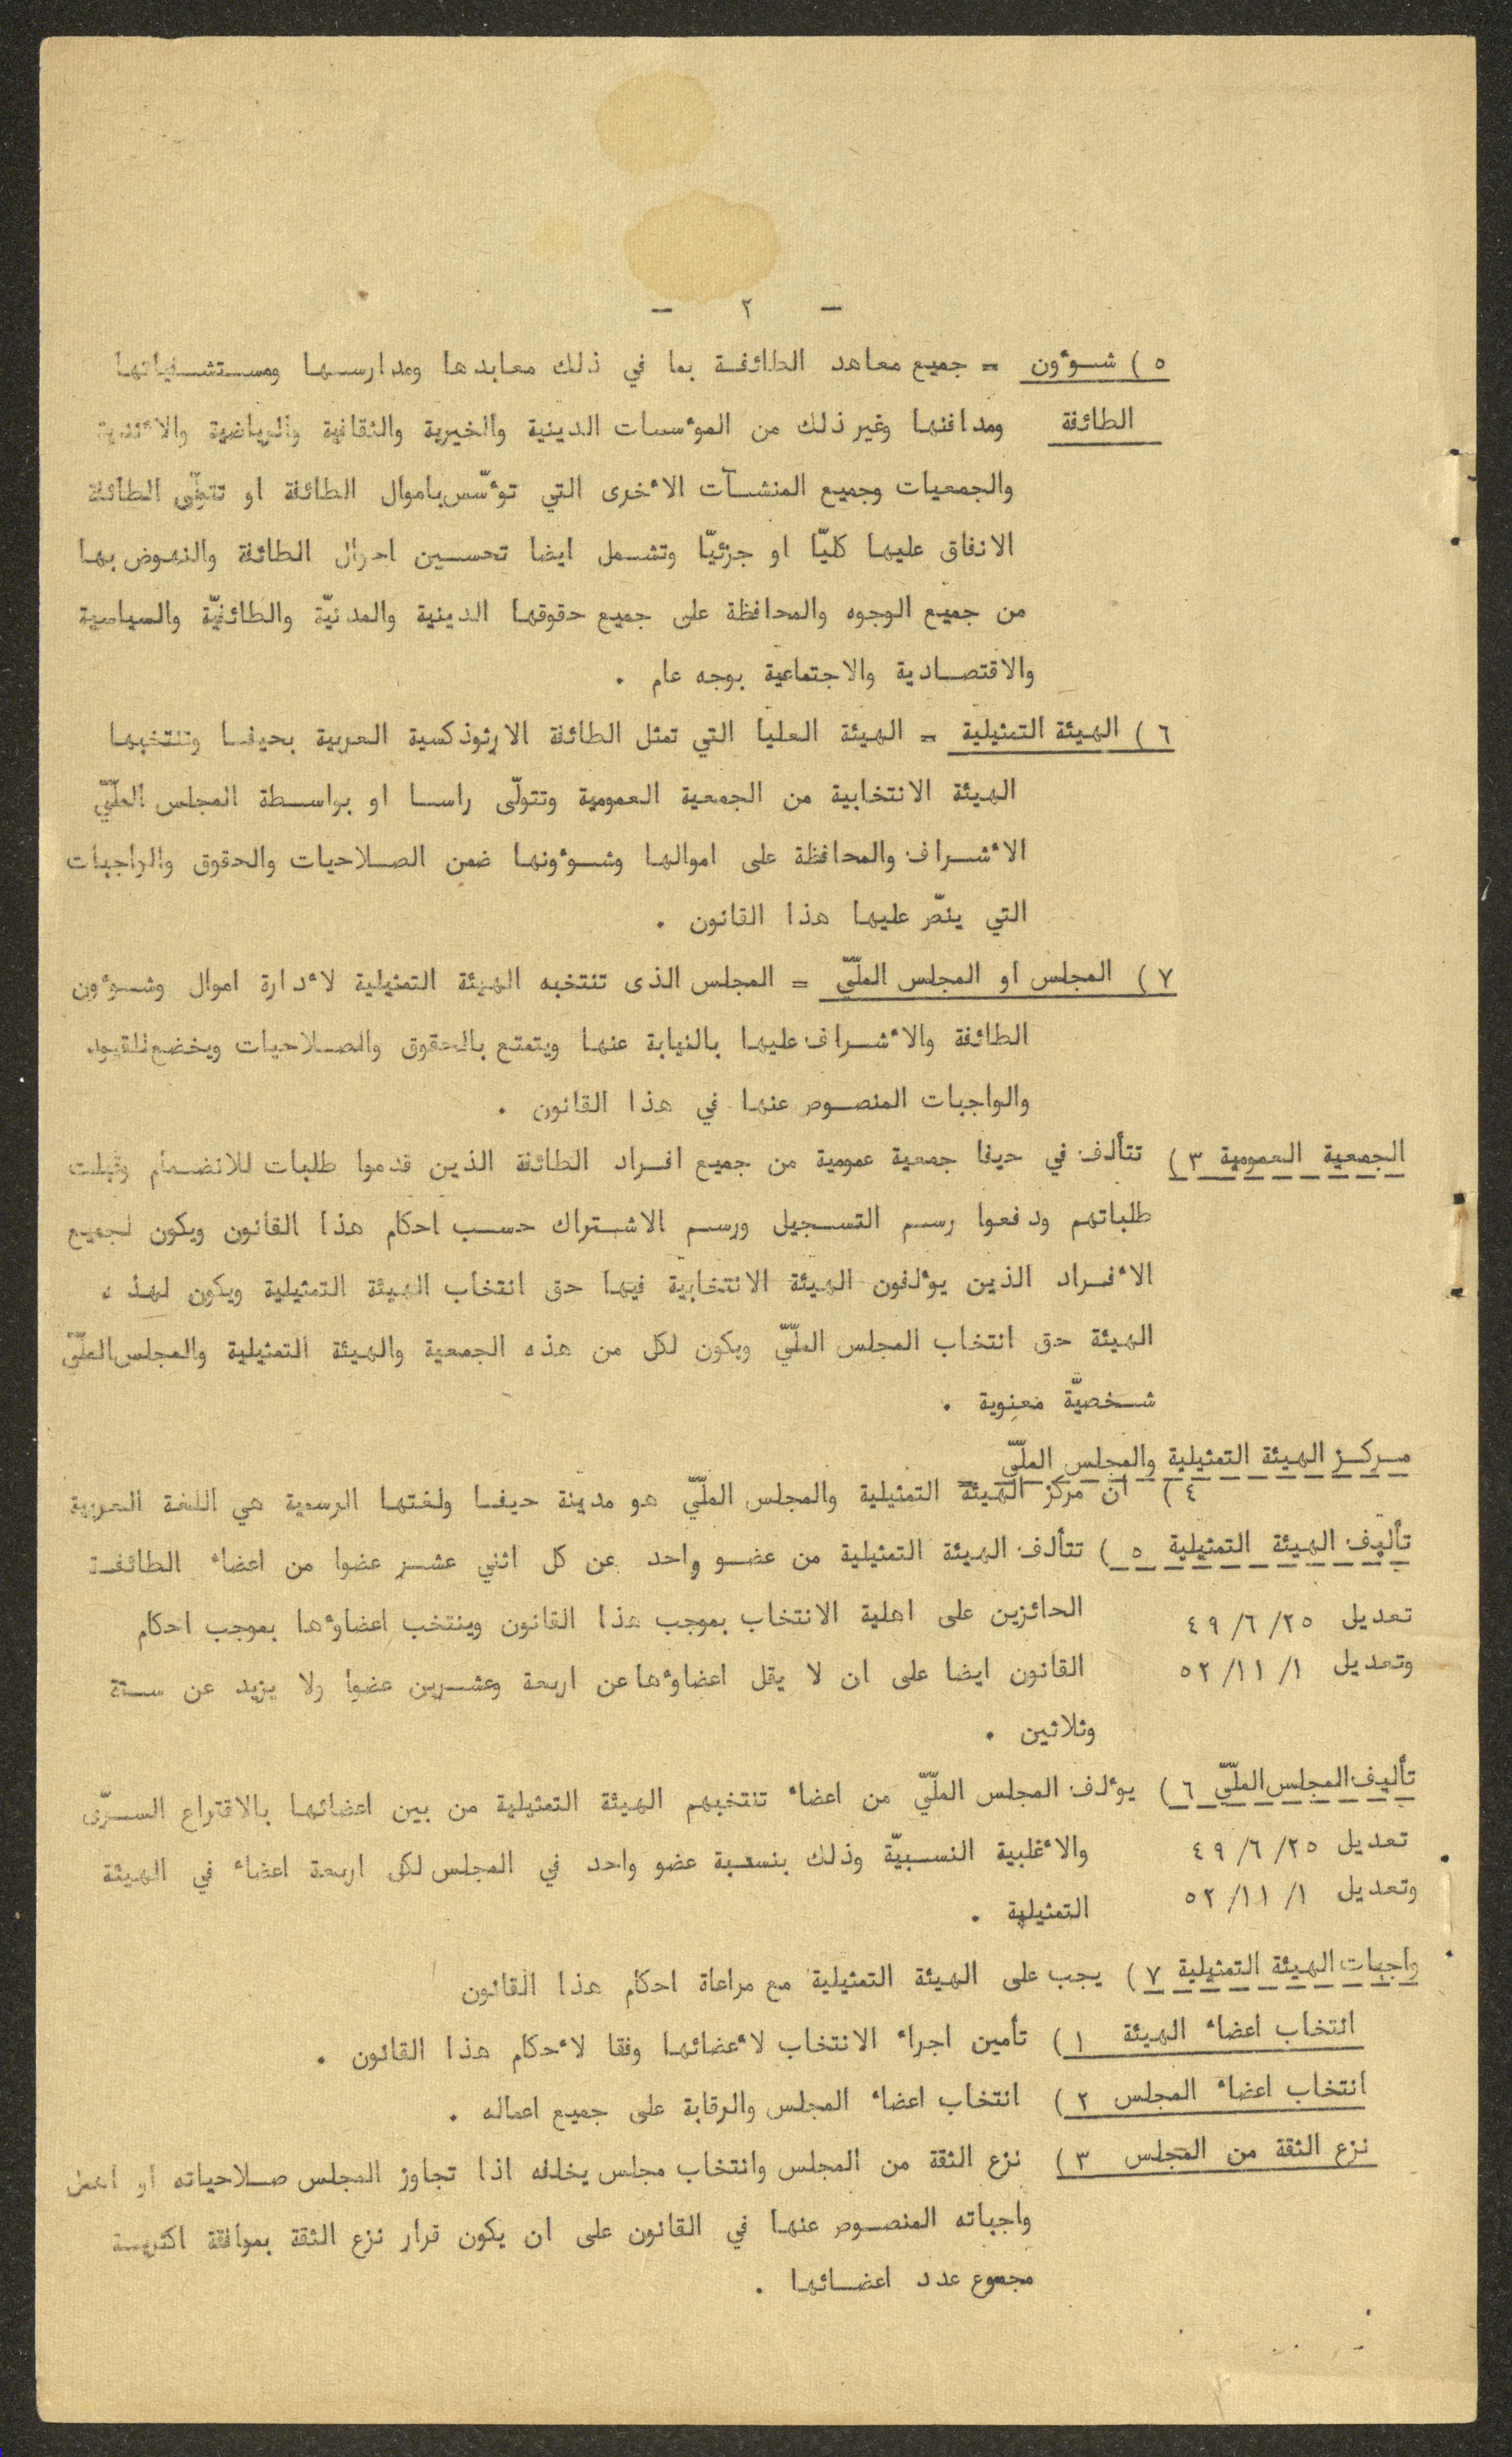 - ٢ -
٥) شؤون = جميع معاهد الطائفة بما في ذلك معابدها ومدارسها ومستشفياتها
الطائفة ومدافنها وغير ذلك من المؤسسات الدينية والخيرية والثقافية والرياضية والأندية
والجمعيات وجميع المنشآت الأخرى التي تؤسّس باموال الطائفة او تتولّى الطائفة
الانفاق عليها كليّا او جزئيّا وتشمل ايضا تحسين احوال الطائفة والنهوض بها
من جميع الوجوه والمحافظة على جميع حقوقها الدينية والمدنيّة والطائفيّة والسياسية
والاقتصادية والاجتماعية بوجه عام .
٦) الهيئة التمثيلية = الهيئة العليا التي تمثل الطائفة الارثوذكسية العربية بحيفا وتنتخبها
الهيئة الانتخابية من الجمعية العمومية وتتولّى راسا او بواسطة المجلس الملّيّ
الأشراف والمحافظة على اموالها وشؤونها ضمن الصلاحيات والحقوق والواجبات
التي ينصّ عليها هذا القانون .
٧) المجلس او المجلس الملّيّ = المجلس الذى تنتخبه الهيئة التمثيلية لأدارة اموال وشؤون
الطائفة والأشراف عليها بالنيابة عنها ويتمتع بالحقوق والصلاحيات ويخضع للقيود
والواجبات المنصوص عنها في هذا القانون .
الجمعية العمومية ٣) تتألف في حيفا جمعية عمومية من جميع افراد الطائفة الذين قدموا طلبات للانضمام وقبلت
طلباتهم ودفعوا رسم التسجيل ورسم الاشتراك حسب احكام هذا القانون ويكون لجميع
الأفراد الذين يؤلفون الهيئة الانتخابية فيها حق انتخاب الهيئة التمثيلية ويكون لهذه
الهيئة حق انتخاب المجلس الملّيّ ويكون لكل من هذه الجمعية والهيئة التمثيلية والمجلس الملّيّ
شخصيّة معنوية .
مركز الهيئة التمثيلية والمجلس الملّيّ
٤) ان مركز الهيئة التمثيلية والمجلس الملّيّ هو مدينة حيفا ولغتها الرسمية هي اللغة العربية
تأليف الهيئة التمثيلية ٥) تتألف الهيئة التمثيلية من عضو واحد عن كل اثني عشر عضوا من اعضاء الطائفة
تعديل ٤٩/٦/٢٥ الحائزين على اهلية الانتخاب بموجب هذا القانون وينتخب اعضاؤها بموجب احكام
وتعديل ٥٢/١١/١ القانون ايضا على ان لا يقل اعضاؤها عن اربعة وعشرين عضوا ولا يزيد عن ستة
وثلاثين .
تأليف المجلس الملّيّ ٦) يؤلف المجلس الملّيّ من اعضاء تنتخبهم الهيئة التمثيلية من بين اعضائها بالاقتراع السرّى
تعديل ٤٩/٦/٢٥ والأغلبية النسبيّة وذلك بنسبة عضو واحد في المجلس لكل اربعة اعضاء في الهيئة
وتعديل ٥٢/١١/١ التمثيلية .
واجبات الهيئة التمثيلية ٧) يجب على الهيئة التمثيلية مع مراعاة احكام هذا القانون
انتخاب اعضاء الهيئة ١) تأمين اجراء الانتخاب لأعضائها وفقا لأحكام هذا القانون .
انتخاب اعضاء المجلس ٢) انتخاب اعضاء المجلس والرقابة على جميع اعماله .
نزع الثقة من المجلس ٣) نزع الثقة من المجلس وانتخاب مجلس يخلفه اذا تجاوز المجلس صلاحياته او اهمل
واجباته المنصوص عنها في القانون على ان يكون قرار نزع الثقة بموافقة اكثرية
مجموع عدد اعضائها .